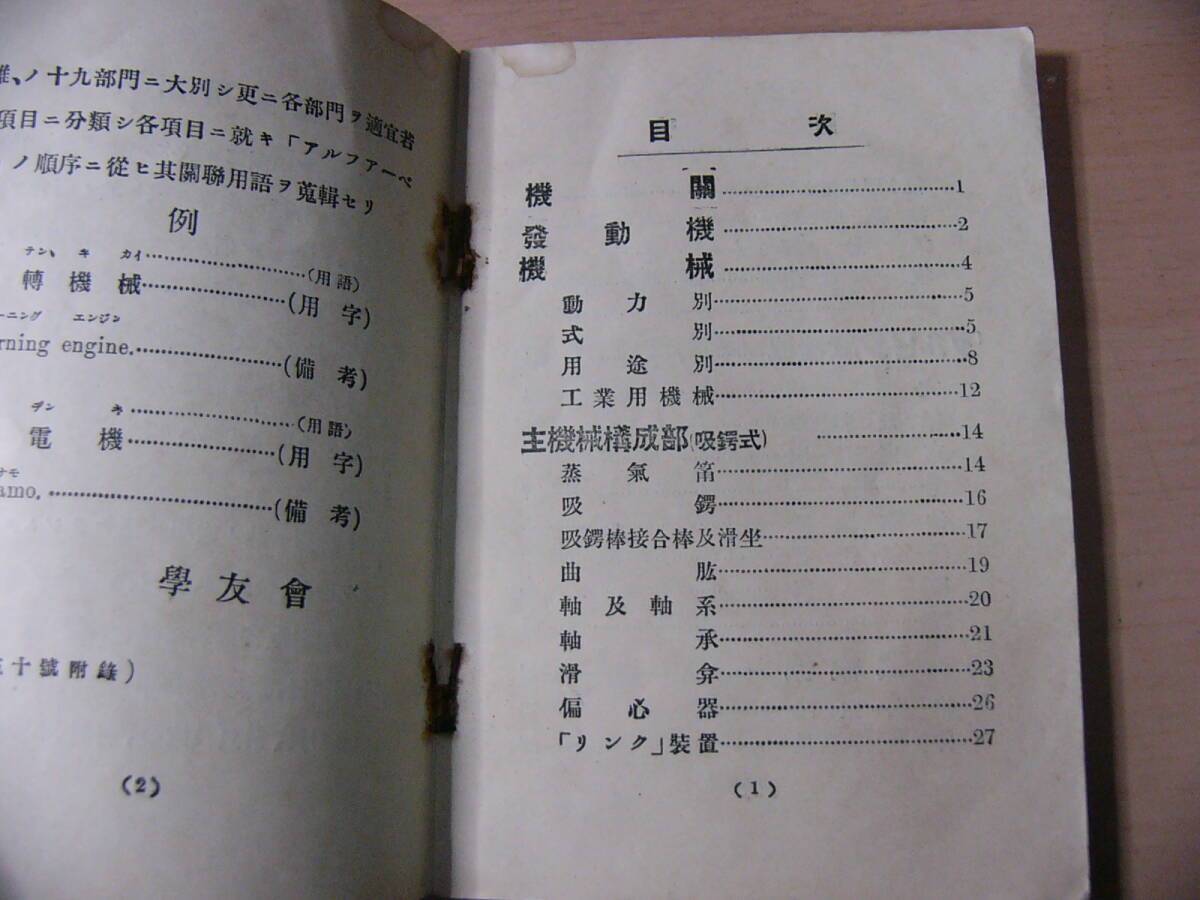 、ノ十九部門ニ大別シ更ニ各部門ヲ適宜若
項目ニ分類シ各項目ニ就キ「アルファーベ
ノ順序ニ從ヒ其關聯用語ヲ蒐輯セリ
例
テン、キカイ……(用語)
轉機械……(用字)
ーニング エンジン
rning engine.……(備考)
デンキ……(用語)
電機……(用字)
ナモ
amo.……(備考)
學友會
十號附錄)
(2)
目次
機關……1
發動機……2
機械……4
動力別……5
式別……5
用途別……8
工業用機械……12
主機械構成部(吸鍔式)……14
蒸氣笛……14
吸鍔……16
吸鍔棒接合棒及滑坐……17
曲肱……19
軸及軸系……20
軸承……21
滑弇……23
偏心器……26
「リンク」裝置……27
(1)